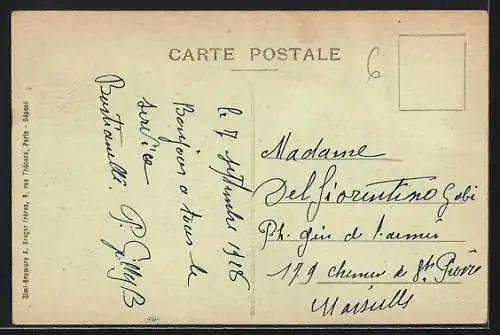 CARTE POSTALE
6
Le 7 septembre 1928
Bonjour a tous le
service
P. Gilly B
Madame
Del Fiorentino Gabi
Ph. gén de l'armée
179 chemin de St. Pierre
Marseille
Simi-Bromure A. Breger Frères, 9, rue Thénard, Paris - Déposé